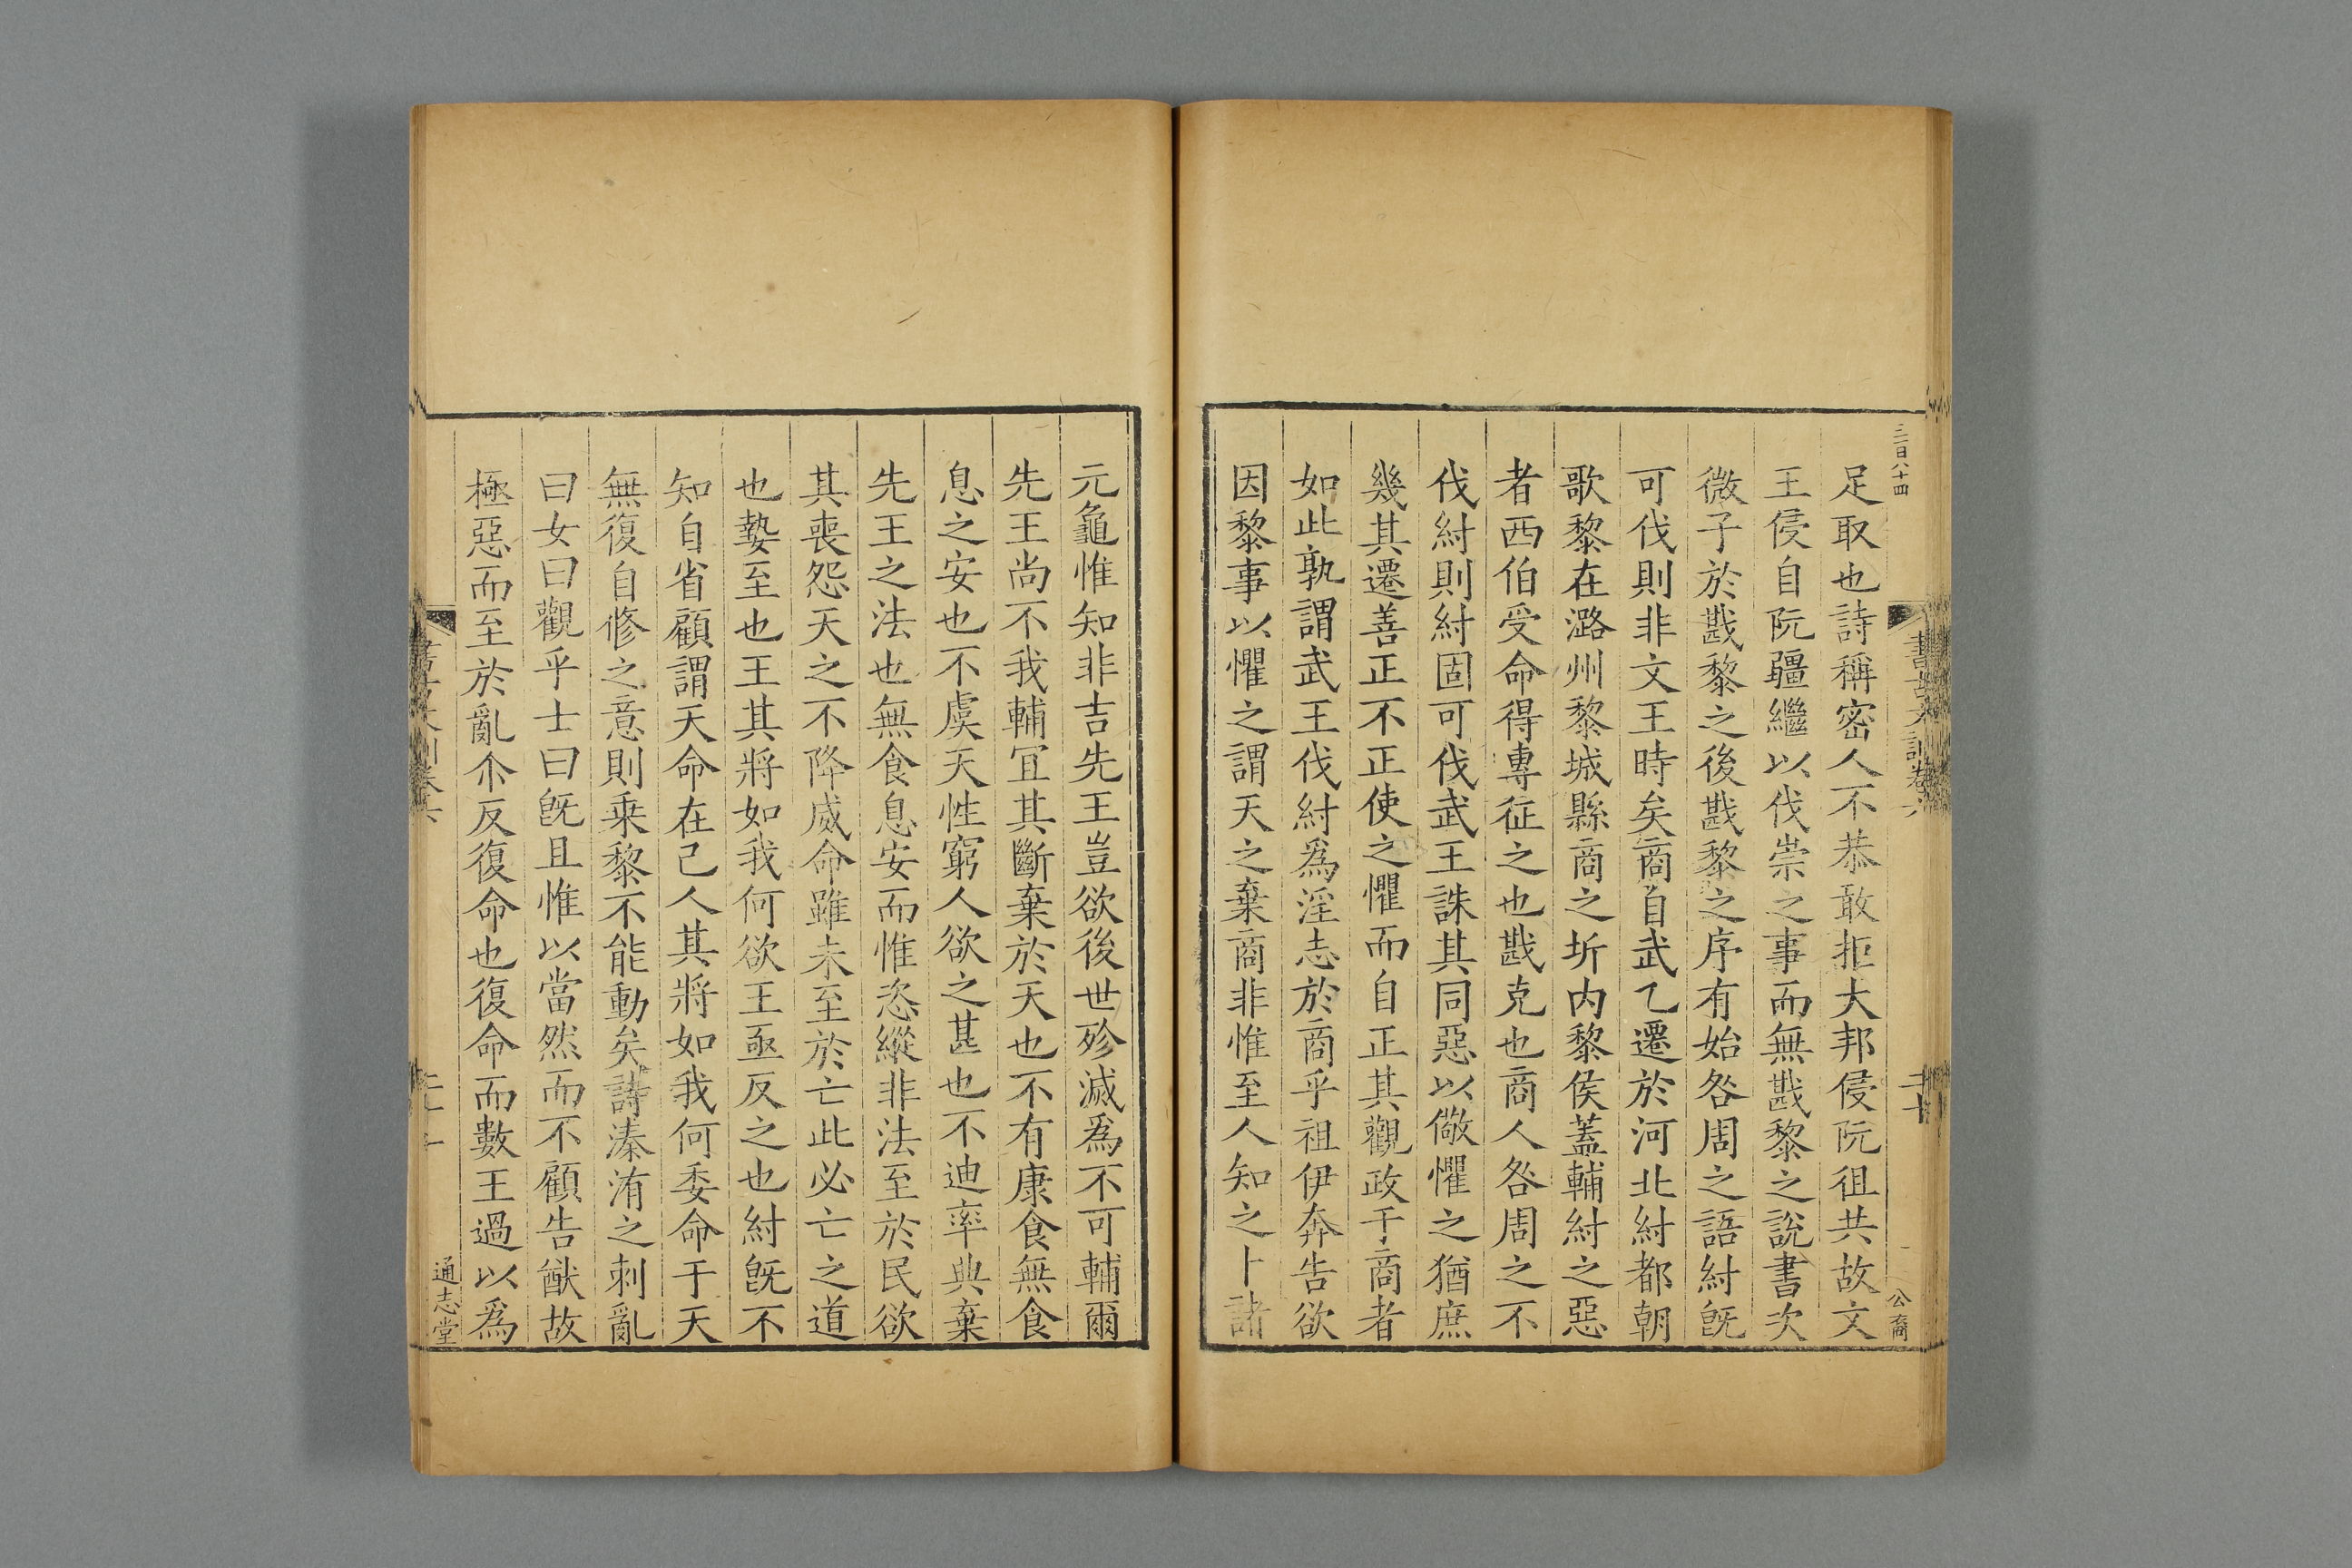 三百八十四
足取也詩稱密人不恭敢拒大邦侵阮徂共故文
王侵自阮疆繼以伐崇之事而無戡黎之說書次
微子於戡黎之後戡黎之序有始咎周之語紂旣
可伐則非文王時矣商自武乙遷於河北紂都朝
歌黎在潞州黎城縣商之圻内黎侯蓋輔紂之惡
者西伯受命得專征之也戡克也商人咎周之不
伐紂則紂固可伐武王誅其同惡以儆懼之猶庶
幾其遷善正不正使之懼而自正其觀政于商者
如此孰謂武王伐紂爲淫志於商乎祖伊奔告欲
因黎事以懼之謂天之棄商非惟至人知之卜諸
書古文訓卷六
二十
公裔
元龜惟知非吉先王豈欲後世殄滅爲不可輔爾
先王尚不我輔冝其斷棄於天也不有康食無食
息之安也不虞天性窮人欲之甚也不迪率典棄
先王之法也無食息安而惟恣縱非法至於民欲
其喪怨天之不降威命雖未至於亡此必亡之道
也摯至也王其將如我何欲王亟反之也紂旣不
知自省顧謂天命在己人其將如我何委命于天
無復自修之意則乗黎不能動矣詩溱洧之刺亂
曰女曰觀乎士曰旣且惟以當然而不顧告猷故
極惡而至於亂尒反復命也復命而數王過以爲
通志堂